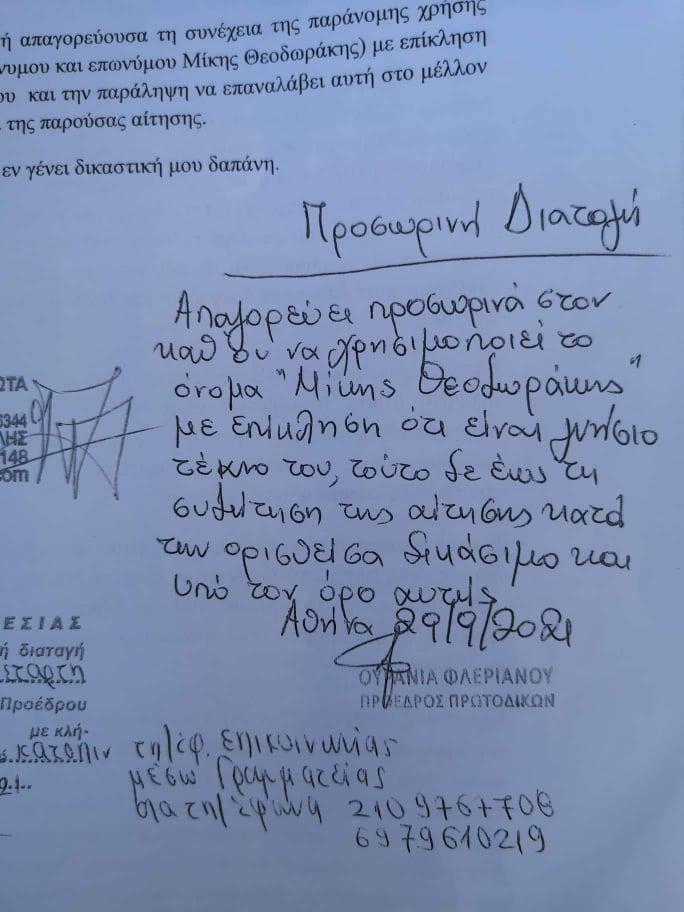 ή απαγορεύουσα τη συνέχεια της παράνομης χρήσης
νυμου και επωνύμου Μίκης Θεοδωράκης) με επίκληση
ου και την παράληψη να επαναλάβει αυτή στο μέλλον
της παρούσας αίτησης.
εν γένει δικαστική μου δαπάνη.
Προσωρινή Διαταγή
Απαγορεύει προσωρινά στον
καθ' ου να χρησιμοποιεί το
όνομα "Μίκης Θεοδωράκης"
με επίκληση ότι είναι γνήσιο
τέκνο του, τούτο δε έως τη
συζήτηση της αίτησης κατά
την ορισθείσα δικάσιμο και
υπό τον όρο αυτής
Αθήνα 29/9/2021
ΟΥΡΑΝΙΑ ΦΛΕΡΙΑΝΟΥ
ΠΡΟΕΔΡΟΣ ΠΡΩΤΟΔΙΚΩΝ
ΩΤΑ
6344
ΛΗΣ
148
com
ΕΣΙΑΣ
ή διαταγή
Προέδρου
με κλή-
κατόπιν τηλεφ. επικοινωνίας
μέσω Γραμματείας
στα τηλέφωνα 210 9767708
6979610219